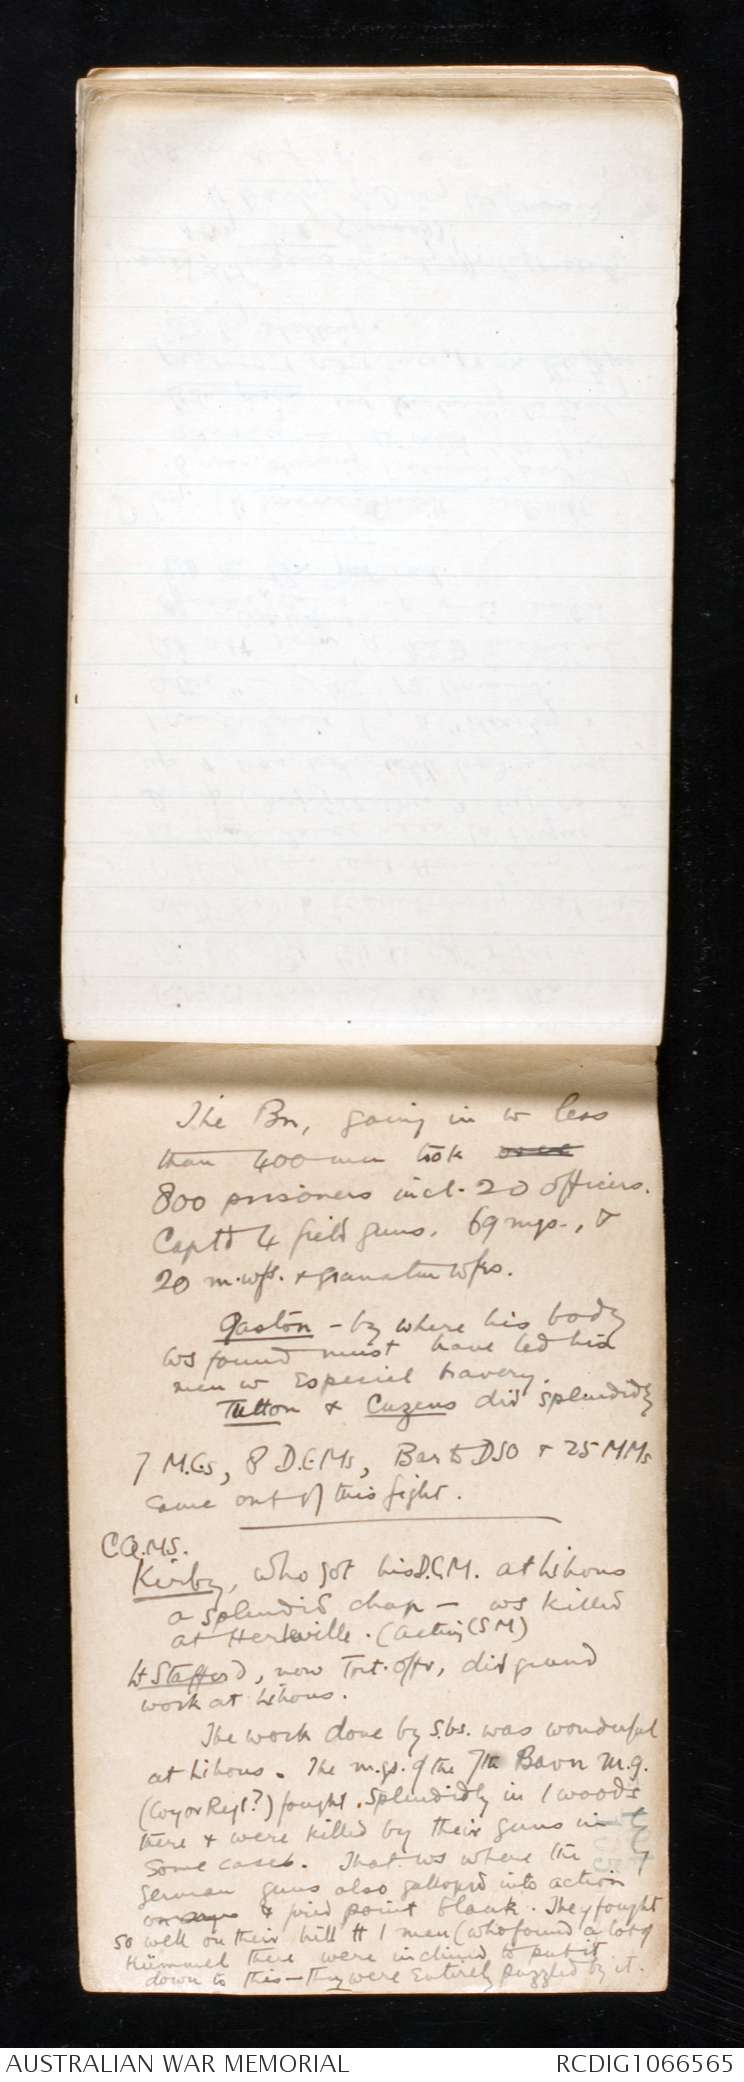 The Bn, going in w less
than 400 men took
800 prisoners incl. 20 officers.
Captd 4 field guns. 69 mgs., &
20 m.wfs. & granaten wfrs.
Gaston - by where his body
ws found must have led his
men w especial bravery.
Tutton & Cuzens did splendidly
7 M.Cs, 8 D.C.Ms, Bar to DSO & 25 MMs
came out of this fight.
C.Q.M.S.
Kirby, who got his D.C.M. at Lihons
a splendid chap - ws killed
at Herleville. (acting CSM)
Lt Stafford, now Tpt. offr, did grand
work at Lihons.
The work done by S.bs. was wonderful
at Lihons. The m.gs. of the 7th Bavn M.G.
(Coy or Regt?) fought splendidly in / woods
there & were killed by their guns in
some cases. That ws where the
German guns also galloped into action
& fired point blank. They fought
so well on their hill tt / men (who found a lot of
Kümmel there were inclined to put it
down to this - they were entirely puzzled by it.
AUSTRALIAN WAR MEMORIAL
RCDIG1066565